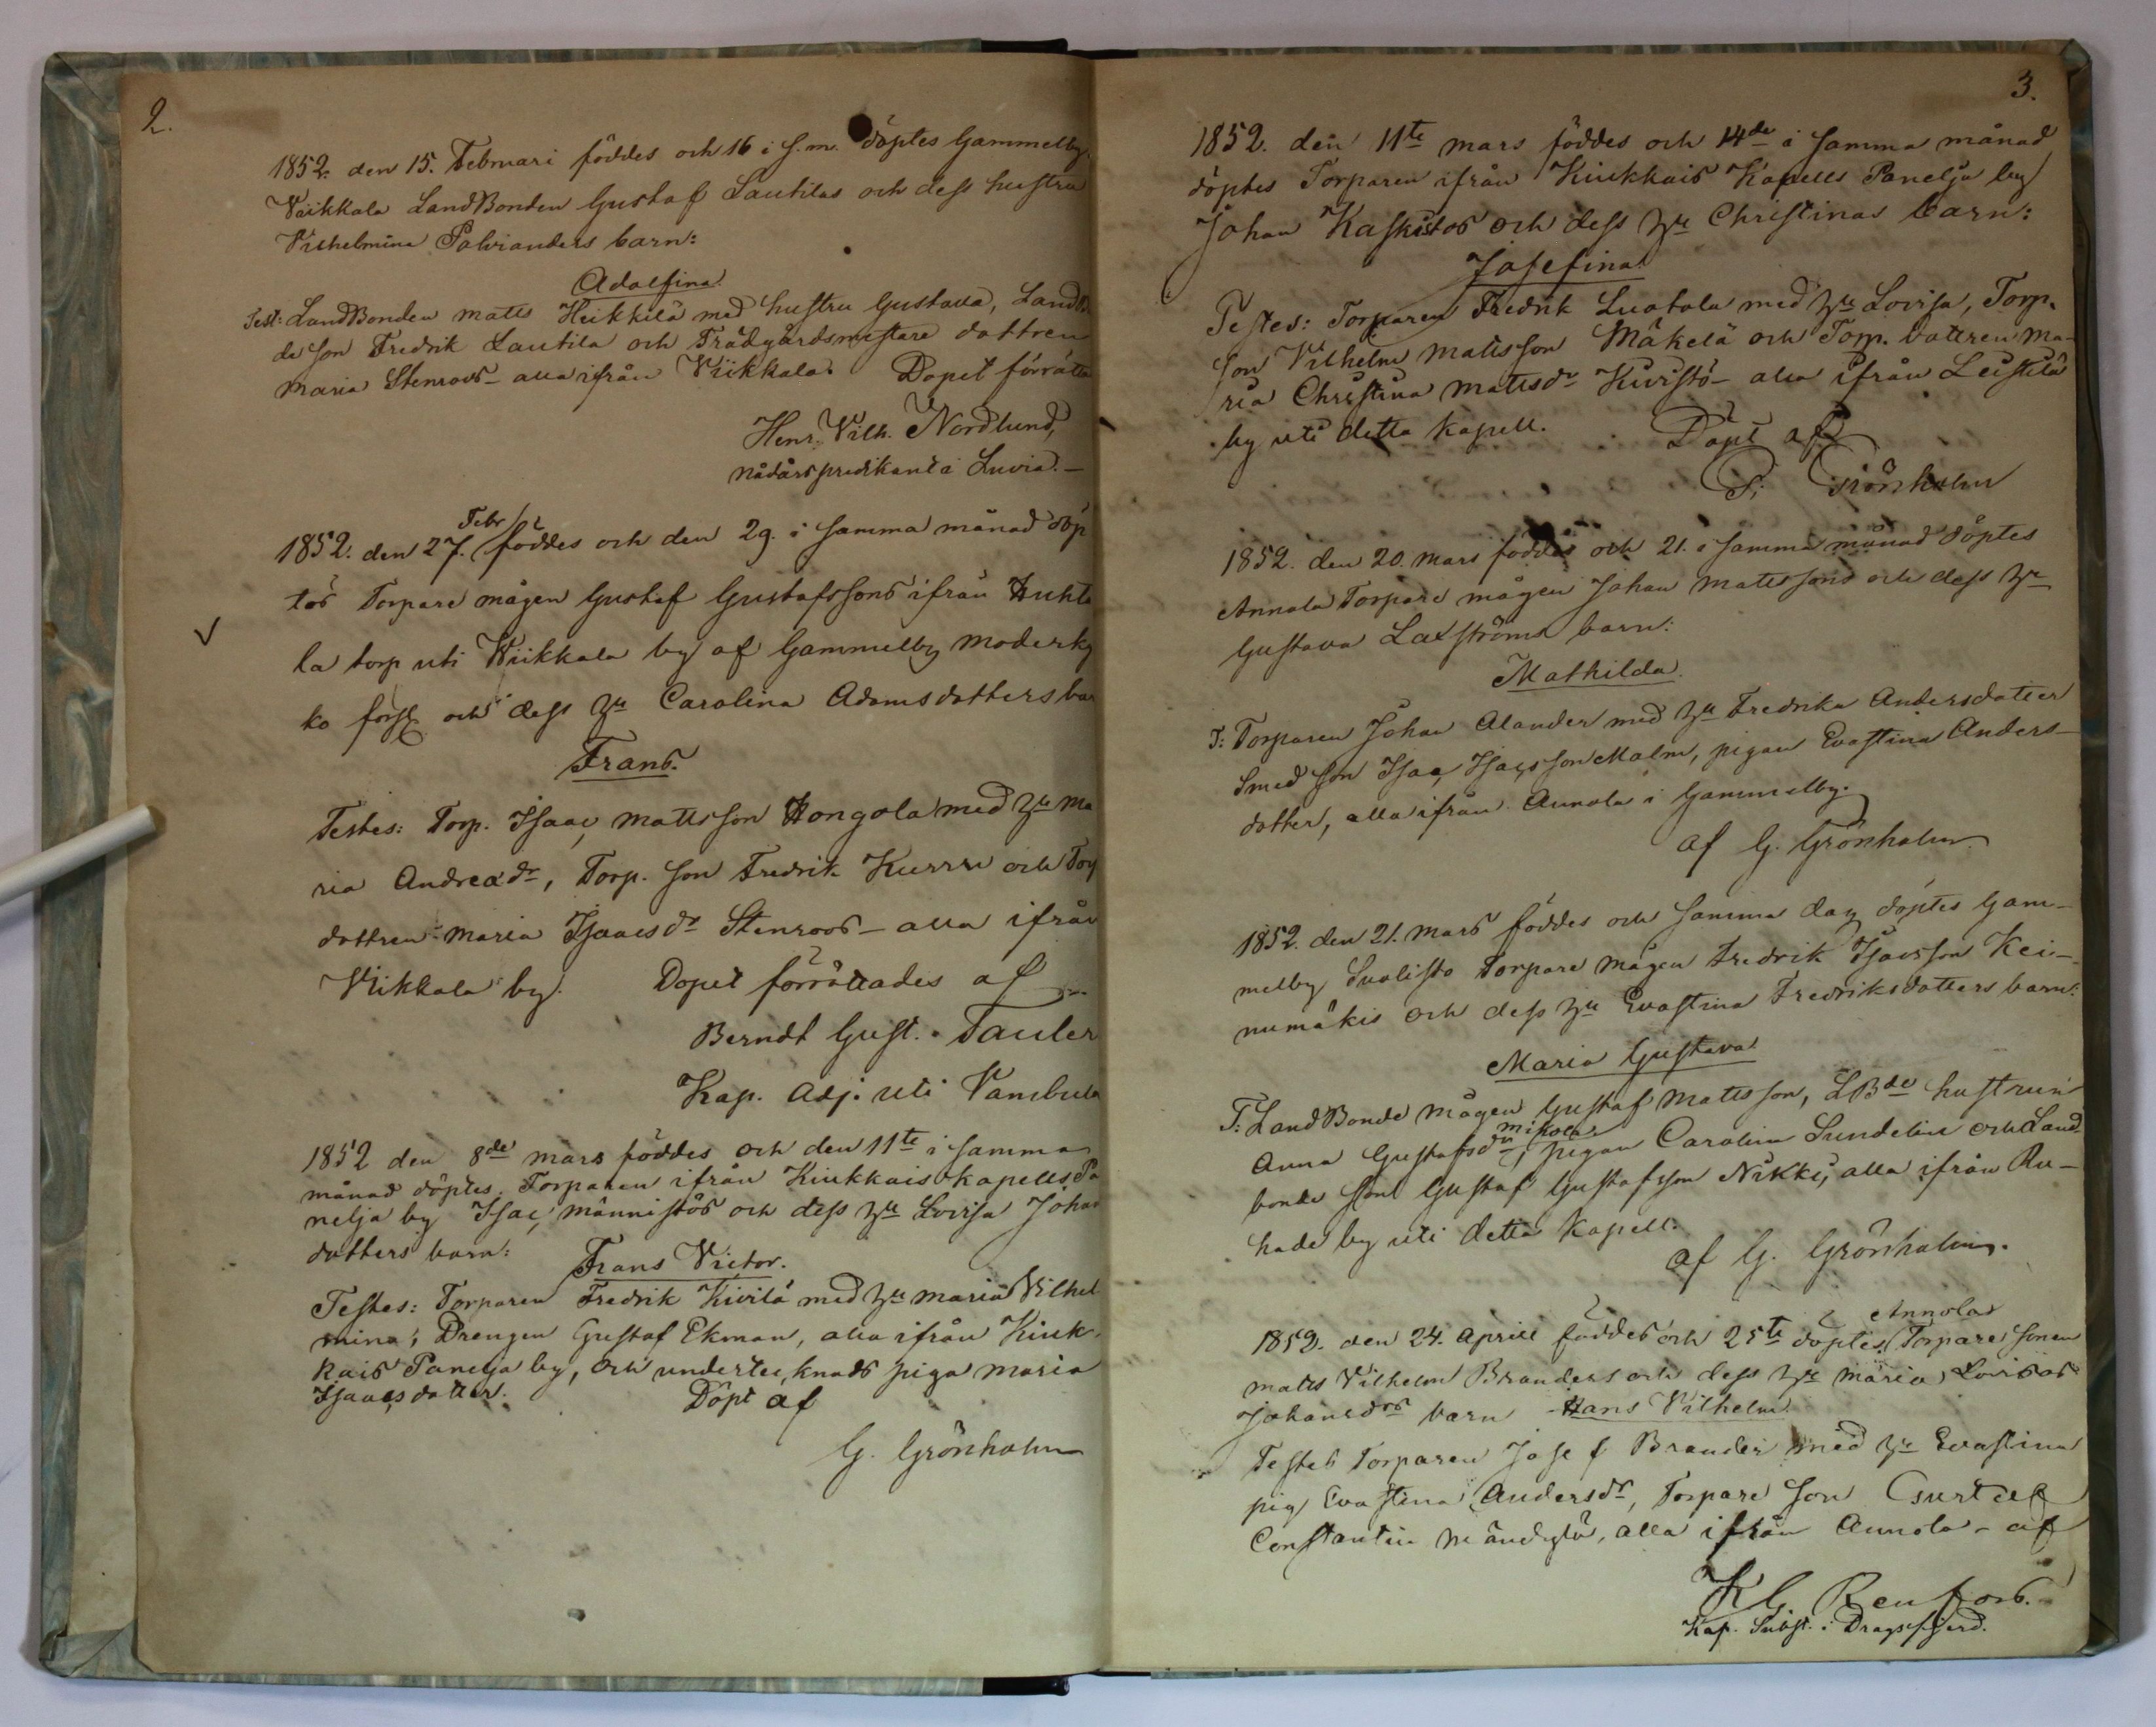 2.
1852. den 15. Februari föddes och 16 i s.m. döptes Gammelby
Viikkala LandBonden Gustaf Lautilas och dess hustru
Vilhelmina Palvianders barn:
Adolfina.
Test: LandBonden Matts Heikkilä med hustru Gustava, LandB
de son Fredrik Lautila och Trädgårdsmästare dottren
Maria Stenroos – alla ifrån Viikkala. Dopet förrätta
Henr. Vilh. Nordlund,
nådårspredikant i Luvia. –
Febr
1852. den 27. föddes och den 29. i samma månad döp
tes Torpare mågen Gustaf Gustafssons ifrån Huhta
la torp uti Viikkala by af Gammelby moderky
ko förs. och dess hu Carolina Adamsdotters bar
Frans.
Testes: Torp. Isaac Mattsson Hongola med hu Ma
ria Andreædr, Torp. son Fredrik Kurru och Torp
dottren Maria Isaacsdr Stenroos – alla ifrån
Viikkala by. Dopet förrättades af
Berndt Gust. Tauler
Kap. Adj. uti Vambula
1852 den 8de mars föddes och den 11te i samma
månad döptes Torparen ifrån Kiukkais kapells Pa
nelja by Isac Männistös och dess hu Lovisa Johan
dotters barn:
Frans Victor.
Testes: Torparen Fredrik Kivilä med hu Maria Vilhel
mina; Drengen Gustaf Ekman, alla ifrån Kiuk-
kais Panelja by, och undertecknads piga Maria
Isaacsdotter. Döpt af
G. Grönholm
3.
1852. den 11te mars föddes och 14de i samma månad
döptes Torparen ifrån Kiukkais Kapells Panelja by
Johan Kaskistos och dess hu Christinas barn:
Josefina.
Testes: Torparen Fredrik Luotola med hu Lovisa, Torp.
son Vilhelm Matsson Mäkelä och Torp. dottren Ma-
ria Christina Mattsdr Kivistö – alla ifrån Leistilä
by uti detta Kapell. Döpt af
G. Grönholm
1852. den 20. mars föddes och 21. i samma månad döptes
Annola Torpare mågen Johan Mattssons och dess hu
Gustava Laxströms barn:
Mathilda.
T: Torparen Johan Alander med hu Fredrika Andersdotter
Smed son Isaac Isacsson Malm, pigan Evastina Anders-
dotter, alla ifrån Annola i Gammelby.
af G. Grönholm.
1852. den 21. mars föddes och samma dag döptes Gam-
melby Suolisto Torpare mågen Fredrik Isacsson Kei-
numäkis och dess hu Evastina Fredriksdotters barn:
Maria Gustava
T: LandBonde mågen Gustaf Mattsson, LBde hustrun
Mikola
Anna Gustafsdr, pigan Carolina Sundelin och Land-
bonde son Gustaf Gustafsson Nikki, alla ifrån Ru-
hade by uti detta kapell.
af G. Grönholm.
Annola
1852. den 24. April föddes och 25te döptes Torpare sonen
Matts Vilhelm Branders och dess hu Maria Lovisas
Johansdrs barn Hans Vilhelm.
Testes Torparen Josef Brander med hu Evastina
pig Evastina Andersdr, Torpare son Gustaf
Constantin Mändylä, alla ifrån Annola – af
K G. Renfors.
Kap. Subst. i Dragsfjerd.